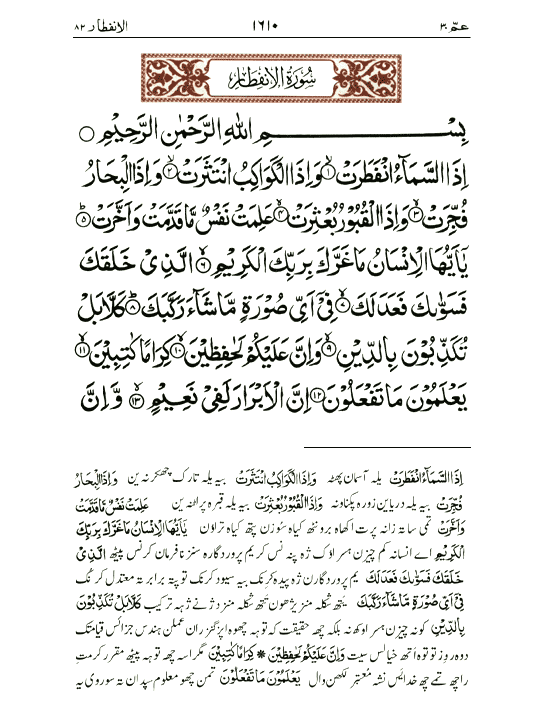 عمّ ٣٠ ١٦١٠ الانفطار ٨٢
سُوْرَةُ الْاِنْفِطَارِ
بِسْمِ اللّٰهِ الرَّحْمٰنِ الرَّحِيْمِ ○
اِذَا السَّمَآءُ انْفَطَرَتْ ۙ﴿١﴾ وَاِذَا الْكَوَاكِبُ انْتَثَرَتْ ۙ﴿٢﴾ وَاِذَا الْبِحَارُ
فُجِّرَتْ ۙ﴿٣﴾ وَاِذَا الْقُبُوْرُ بُعْثِرَتْ ۙ﴿٤﴾ عَلِمَتْ نَفْسٌ مَّا قَدَّمَتْ وَاَخَّرَتْ ؕ﴿٥﴾
يٰۤاَيُّهَا الْاِنْسَانُ مَا غَرَّكَ بِرَبِّكَ الْكَرِيْمِ ۙ﴿٦﴾ الَّذِىْ خَلَقَكَ
فَسَوّٰىكَ فَعَدَلَكَ ۙ﴿٧﴾ فِىْۤ اَىِّ صُوْرَةٍ مَّا شَآءَ رَكَّبَكَ ؕ﴿٨﴾ كَلَّا بَلْ
تُكَذِّبُوْنَ بِالدِّيْنِ ۙ﴿٩﴾ وَاِنَّ عَلَيْكُمْ لَحٰفِظِيْنَ ۙ﴿١٠﴾ كِرَامًا كٰتِبِيْنَ ۙ﴿١١﴾
يَعْلَمُوْنَ مَا تَفْعَلُوْنَ ﴿١٢﴾ اِنَّ الْاَبْرَارَ لَفِىْ نَعِيْمٍ ۙ﴿١٣﴾ وَّاِنَّ
اِذَا السَّمَآءُ انْفَطَرَتْ یلہ آسمان پھٹہ وَاِذَا الْكَوَاكِبُ انْتَثَرَتْ بیہ یلہ تارک چھکرنہ ین وَاِذَا الْبِحَارُ
فُجِّرَتْ بیہ یلہ دریاین زورہ پکناونہ وَاِذَا الْقُبُوْرُ بُعْثِرَتْ بیہ یلہ قبرہ پراٹنہ ین عَلِمَتْ نَفْسٌ مَّا قَدَّمَتْ
وَاَخَّرَتْ تمی ساتہ زانہ پرت اکھاہ برونٹھ کیاہ سوزن پتھ کیاہ تراون يٰۤاَيُّهَا الْاِنْسَانُ مَا غَرَّكَ بِرَبِّكَ
الْكَرِيْمِ اے انسانہ کم چیزن ہسر اوک ژہ پنہ نس کریم پروردگارہ سنز نافرمان کرنس پیٹھ الَّذِىْ
خَلَقَكَ فَسَوّٰىكَ فَعَدَلَكَ یم پروردگارن ژہ پیدہ کرنک بیہ سیود کرنک تو پتہ برابر تہ معتدل کرنک
فِىْۤ اَىِّ صُوْرَةٍ مَّا شَآءَ رَكَّبَكَ یتھ شکلہ منز یژھون تتھ شکلہ منز دژنے ژہہ ترکیب كَلَّا بَلْ تُكَذِّبُوْنَ
بِالدِّيْنِ کونہ چیزن ہسر اوکھ نہ بلکہ چھہ حقیقت کہ توہہ چھوہ اپزگنزران عملن ہندس جزائس قیامتک
دوہ روز توتوہ اتھ خیالس سیت وَاِنَّ عَلَيْكُمْ لَحٰفِظِيْنَ * كِرَامًا كٰتِبِيْنَ مگر اسہ چھہ توہہ پیٹھ مقرر کرمت
راچھ تمے چھ خدایس نشہ معتبر لکھن وال يَعْلَمُوْنَ مَا تَفْعَلُوْنَ تمن چھو معلوم سپدان تہ سوروی یہ